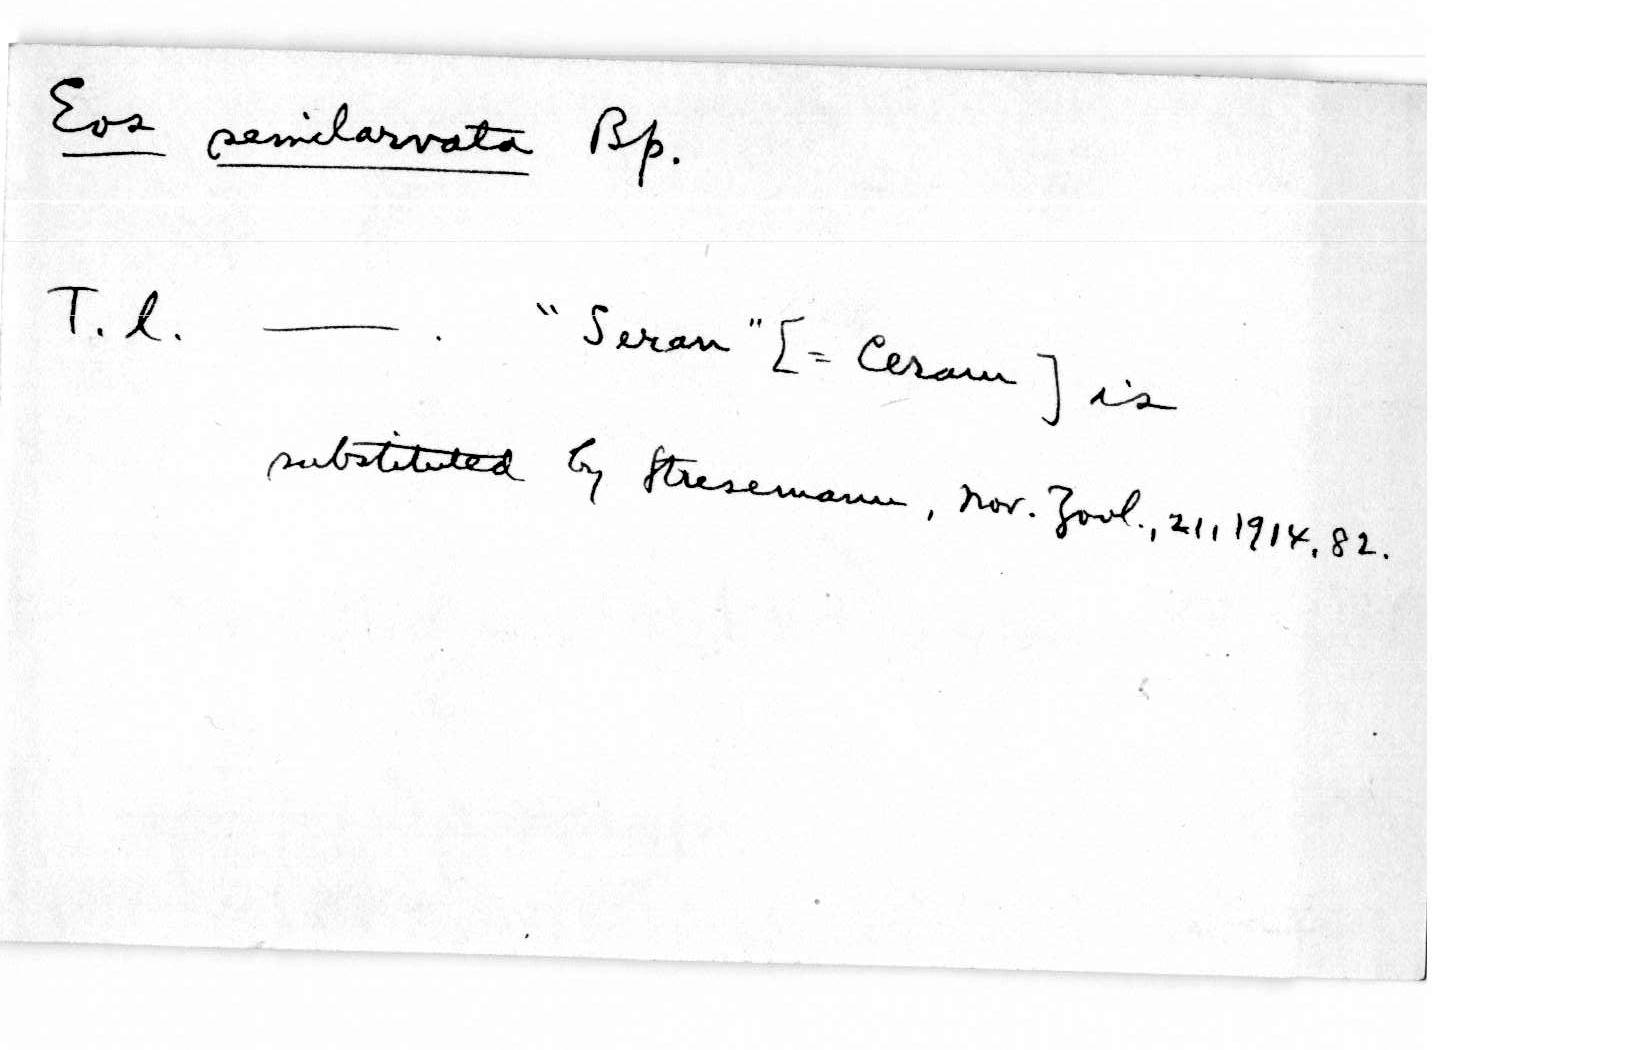 Eos semilarvata Bp.
T. l. ——. "Seran" [= Ceram] is
substituted by Stresemann, Nov. Zool., 21, 1914, 82.